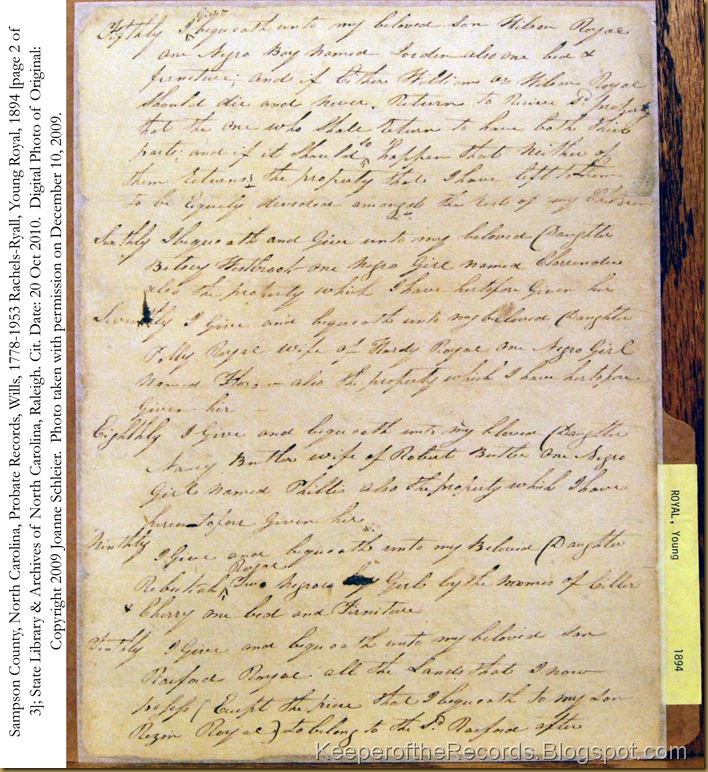 Sampson County, North Carolina, Probate Records, Wills, 1778-1953 Rachels-Ryall, Young Royal, 1894 [page 2 of
3]; State Library & Archives of North Carolina, Raleigh. Cit. Date: 20 Oct 2010. Digital Photo of Original:
Copyright 2009 Joanne Schleier. Photo taken with permission on December 10, 2009.
Fifthly I give & bequeath unto my beloved Son Wilson Royal
one Negro Boy Named Jorden also one bed &
firniture, and if Either William or Wilson Royal
Should die and never Return to Recive Sd property
that the one who Shall return to have both their
parts, and if it Should so happen that Neither of
them returns the property that I have left to them
to be Equely devided amongst the rest of my
Sixthly I bequeath and Give unto my beloved Daughter
Betsey one Negro Girl named Clarender
also the property which I have hertofore Given her
Seventhly I Give and bequeath unto my beloved Daughter
Polly Royal wife of Hardy Royal one Negro Girl
Named Flora also the property which I have hertofore
Given her
Eighthly I Give and bequeath unto my beloved Daughter
Nancy Butler wife of Robert Butler One Negro
Girl named Phillis also the property which I have
hereintofore Given her
Ninthly I Give and bequeath unto my Beloved Daughter
Rebeckah Royal Two Negroe Girls by the names of
& Cherry one bed and Firniture
Tenthly I Give and bequeath unto my beloved Son
Raeford Royal all the Lands that I now
posess (Except the piece that I bequeath to my Son
Rezin Royal) to belong to the Sd Raeford after
ROYAL, Young
1894
KeeperoftheRecords.Blogspot.com